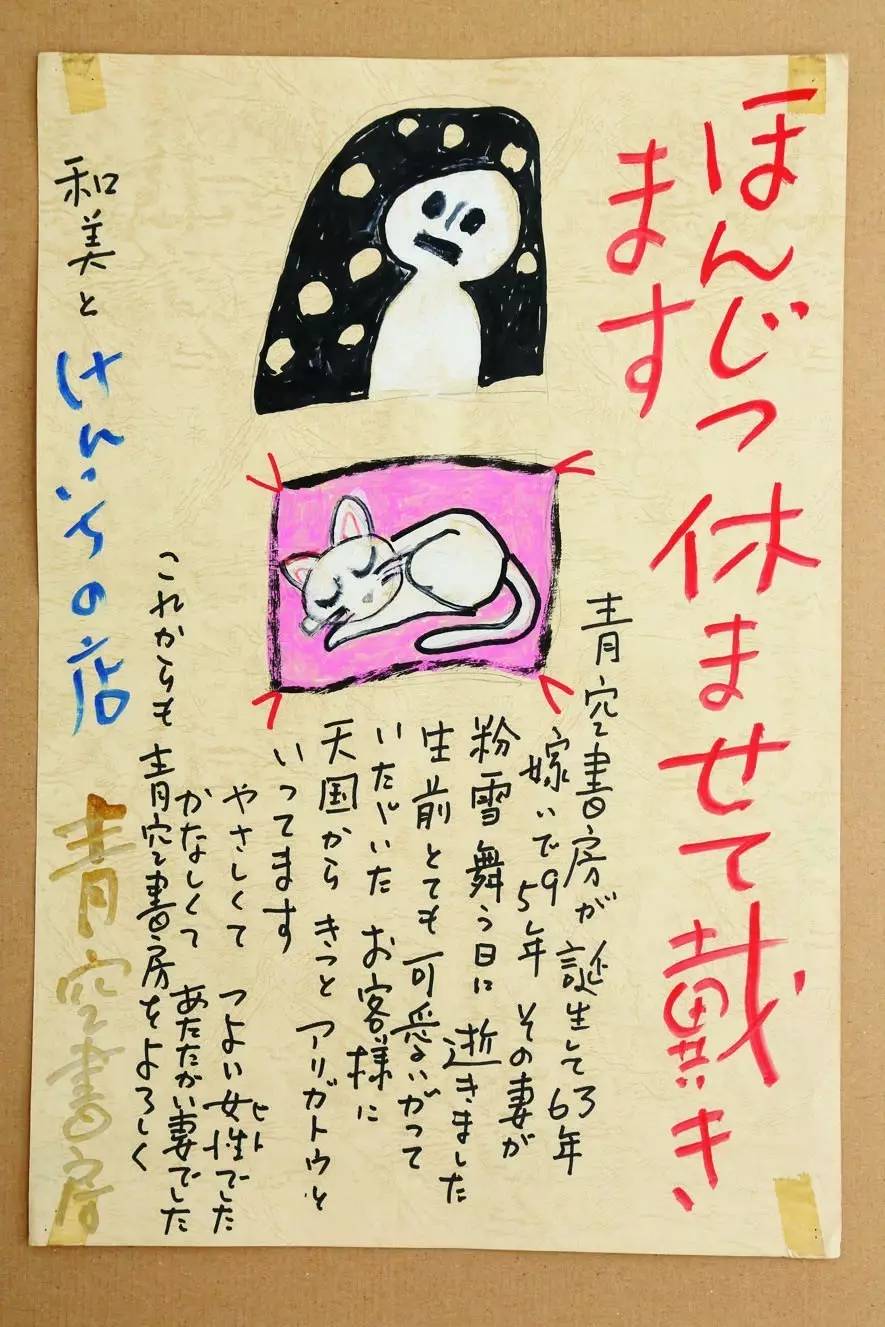 ほんじつ休ませて戴き
ます
青空書房が誕生して63年
嫁いで95年その妻が
粉雪舞う日に逝きました
生前とても可愛いがって
いただいたお客様に
天国からきっとアリガトウと
いってます
やさしくてつよい女性でした
ヒト
かなしくてあたたかい妻でした
これからも青空書房をよろしく
和美と
けんいちの店
青空書房